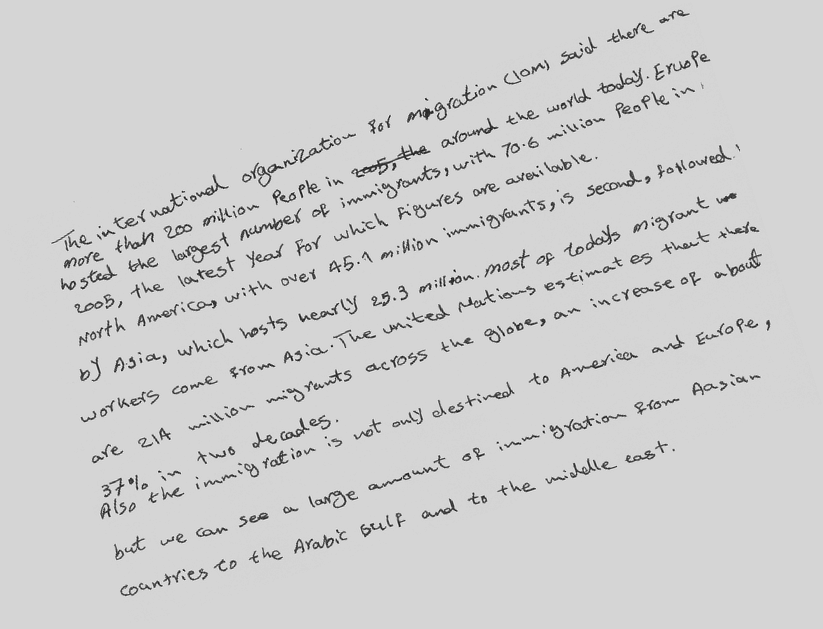 The international organization for migration (IOM) said there are
more than 200 million People in 2005, the around the world today. Eruope
hosted the largest number of immigrants, with 70.6 million People in
2005, the latest Year for which figures are available.
North America, with over 45.1 million immigrants, is second, followed
by Asia, which hosts nearly 25.3 million. most of todays migrant
workers come from Asia. The united Nations estimates that there
are 214 million migrants across the globe, an increase of about
37% in two decades.
Also the immigration is not only destined to America and Europe,
but we can see a large amount of immigration from Aasian
countries to the Arabic Gulf and to the middle east.